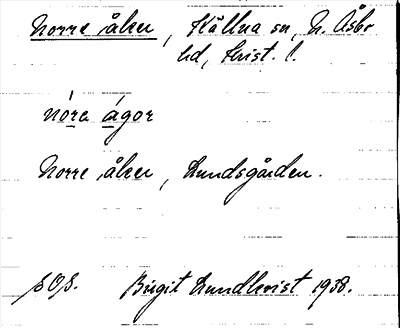 Norre åker, Källna sn, N. Åsbo
hd, Krist. l.
nóra ágor
Norre åker, Lundsgården.
S.O.S. Birgit Lundkvist 1938.